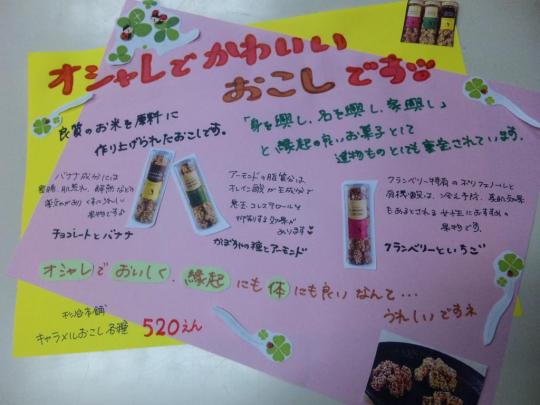 オシャレでかわいい
おこしです
良質のお米を原料に
作り上げられたおこしです。
「身を興し、名を興し、家興し」
と、縁起の良いお菓子として
進物ものとしても重宝されています。
バナナ成分には
整腸、肌荒れ、
果物です♪
チョコレートとバナナ
アーモンドの脂質は
オレイン酸が主成分で
悪玉コレステロールを
抑制する効果が
あります♡
かぼちゃの種とアーモンド
クランベリー特有のポリフェノールと
有機酸は、冷え予防、美肌効果
もあるとされる女性におすすめの
果物です。
クランベリーといちご
オシャレでおいしく、縁起にも体にも良いなんて…
うれしいですネ
キャラメルおこし各種 520えん